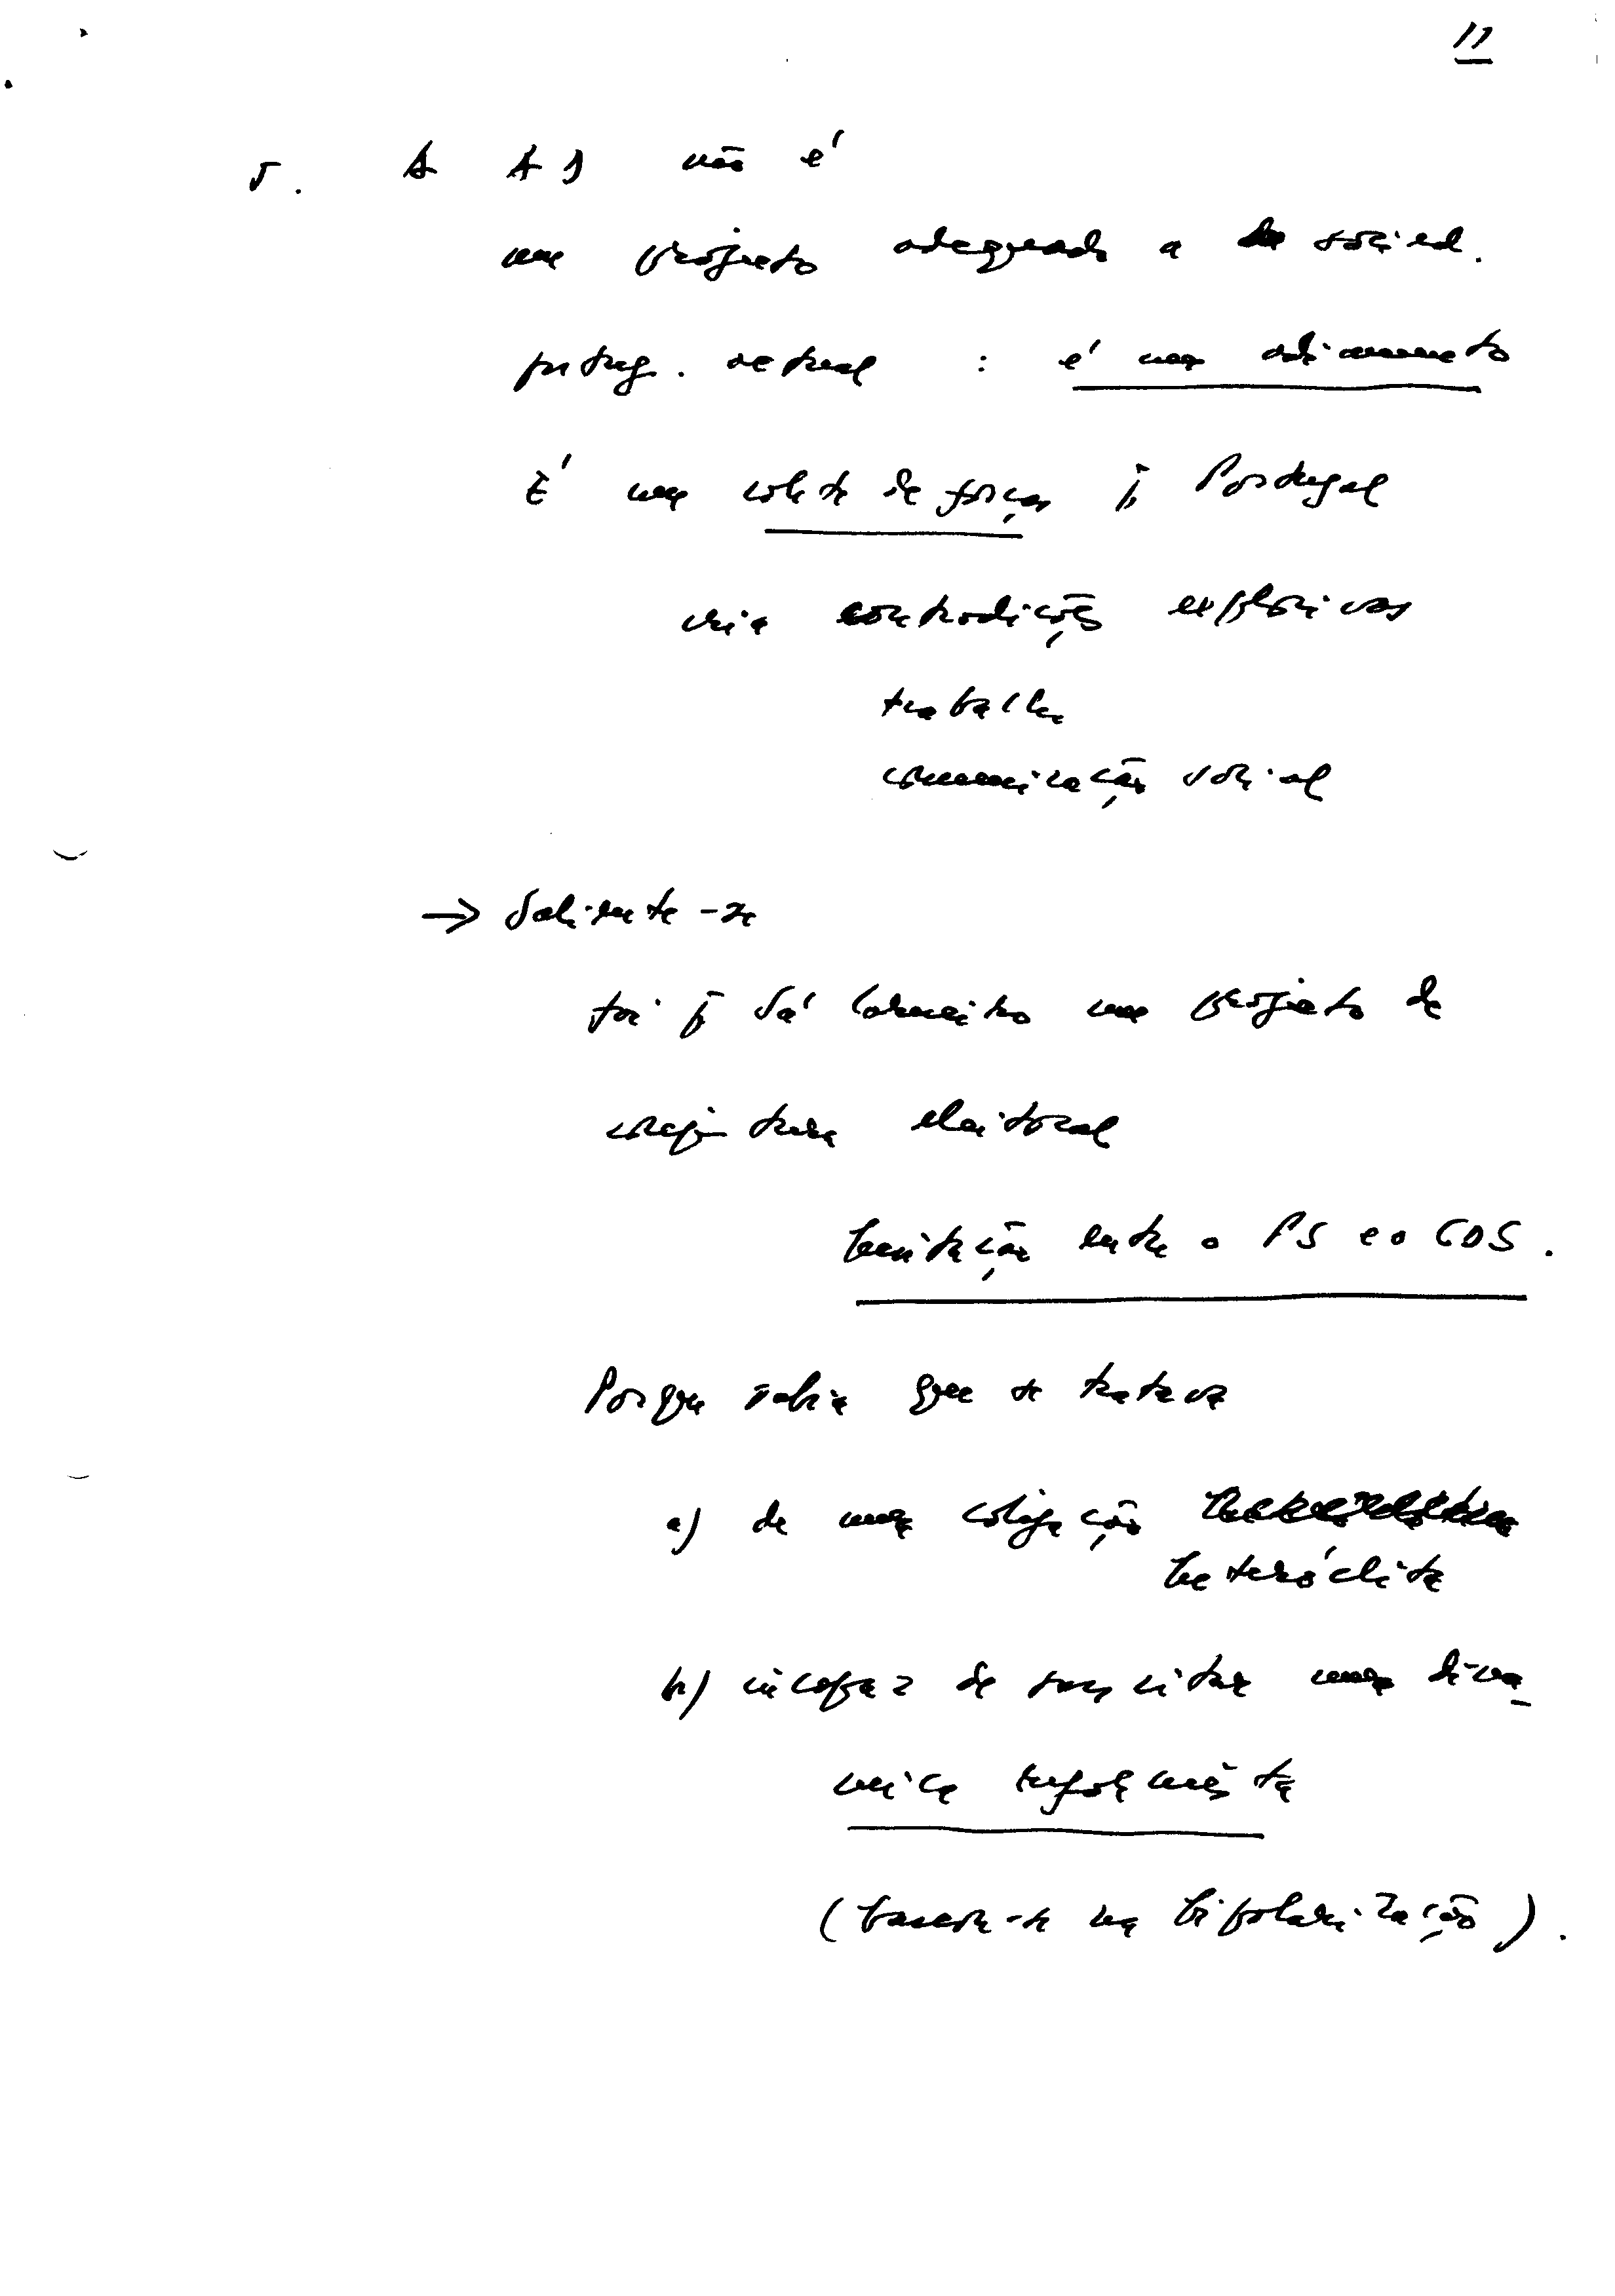 11
5. A AD não é
um projeto adequado a socied.
portug. actual : é um adiamento
É um colete de forças p. Portugal
cria contradições explosivas
trabalho
comunicação social
→ Saliente-se
foi p. Sá Carneiro um projeto de
conjuntura eleitoral
hesitação entre o PS e o CDS.
Porque sabia que se tratava
a) de uma coligação
heteróclita
b) incapaz de suscitar uma dina-
mica reformista
(baseou-se na bipolarização).